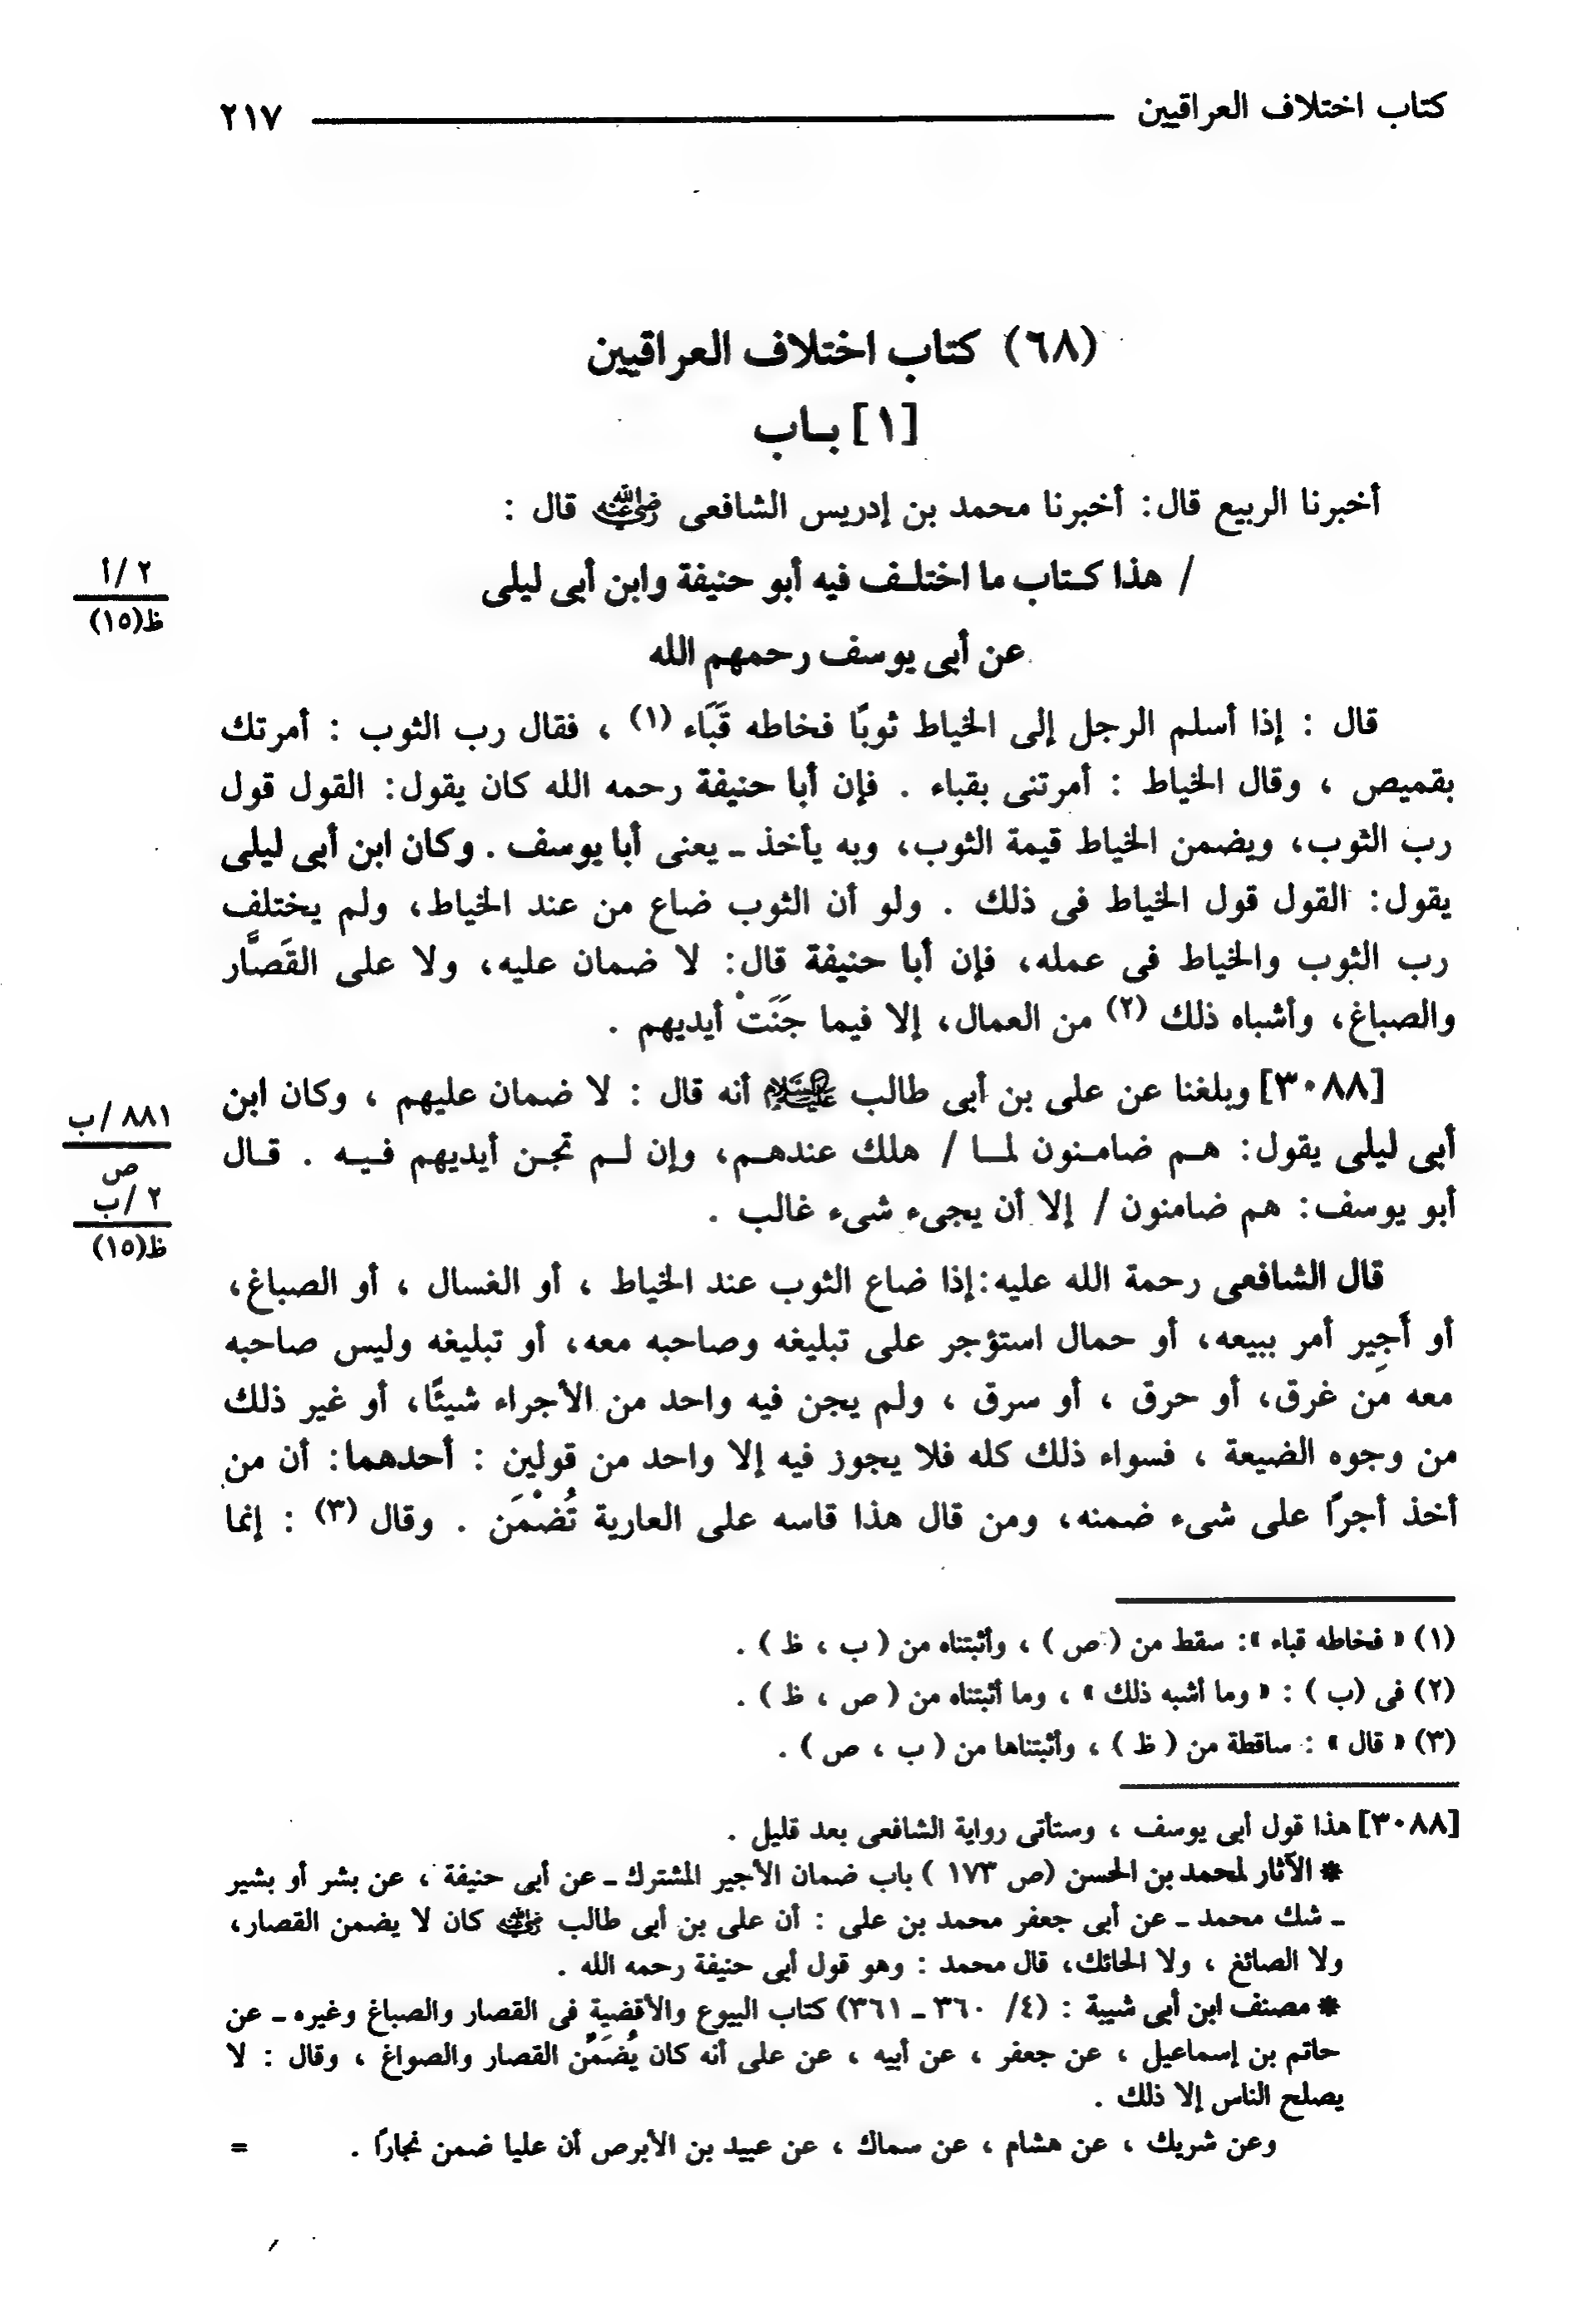 كتاب اختلاف العراقيين ٢١٧
(٦٨) كتاب اختلاف العراقيين
[١] بـاب
أخبرنا الربيع قال: أخبرنا محمد بن إدريس الشافعى رضي الله عنه قال :
/ هذا كـتاب ما اختلـف فيه أبو حنيفة وابن أبى ليلى
٢ /أ
ظ(١٥)
عن أبى يوسف رحمهم الله
قال : إذا أسلم الرجل إلى الخياط ثوبًا فخاطه قَبَاء (١) ، فقال رب الثوب : أمرتك
بقميص ، وقال الخياط : أمرتنى بقباء . فإن أبا حنيفة رحمه الله كان يقول: القول قول
رب الثوب، ويضمن الخياط قيمة الثوب، وبه يأخذ ـ يعنى أبا يوسف . وكان ابن أبى ليلى
يقول: القول قول الخياط فى ذلك . ولو أن الثوب ضاع من عند الخياط، ولم يختلف
رب الثوب والخياط فى عمله، فإن أبا حنيفة قال: لا ضمان عليه، ولا على القَصَّار
والصباغ، وأشباه ذلك (٢) من العمال، إلا فيما جَنَتْ أيديهم .
[٣٠٨٨] وبلغنا عن على بن أبى طالب عليه السلام أنه قال : لا ضمان عليهم ، وكان ابن
أبى ليلى يقول: هـم ضامـنون لمـا / هلك عندهـم، وإن لـم تجـن أيديهم فـيـه . قـال
٨٨١ /ب
ص
أبو يوسف: هم ضامنون / إلا أن يجىء شىء غالب .
٢ /ب
ظ(١٥)
قال الشافعى رحمة الله عليه:إذا ضاع الثوب عند الخياط ، أو الغسال ، أو الصباغ،
أو أَجِير أمر ببيعه، أو حمال استؤجر على تبليغه وصاحبه معه، أو تبليغه وليس صاحبه
معه من غرق، أو حرق ، أو سرق ، ولم يجن فيه واحد من الأجراء شيئًا، أو غير ذلك
من وجوه الضيعة ، فسواء ذلك كله فلا يجوز فيه إلا واحد من قولين : أحدهما: أن من
أخذ أجرًا على شىء ضمنه، ومن قال هذا قاسه على العارية تُضْمَن . وقال (٣) : إنما
(١) « فخاطه قباء »: سقط من ( ص ) ، وأثبتناه من ( ب ، ظ ) .
(٢) فى (ب ) : « وما أشبه ذلك » ، وما أثبتناه من ( ص ، ظ ) .
(٣) « قال » : ساقطة من ( ظ ) ، وأثبتناها من ( ب ، ص ) .
[٣٠٨٨] هذا قول أبى يوسف ، وستأتى رواية الشافعى بعد قليل .
* الآثار لمحمد بن الحسن (ص ١٧٣ ) باب ضمان الأجير المشترك ـ عن أبى حنيفة ، عن بشر أو بشير
ـ شك محمد ـ عن أبى جعفر محمد بن على : أن على بن أبى طالب رضي الله عنه كان لا يضمن القصار،
ولا الصائغ ، ولا الحائك، قال محمد : وهو قول أبى حنيفة رحمه الله .
* مصنف ابن أبى شيبة : (٤/ ٣٦٠ ـ ٣٦١) كتاب البيوع والأقضية فى القصار والصباغ وغيره ـ عن
حاتم بن إسماعيل ، عن جعفر ، عن أبيه ، عن على أنه كان يُضَمِّن القصار والصواغ ، وقال : لا
يصلح الناس إلا ذلك .
وعن شريك ، عن هشام ، عن سماك ، عن عبيد بن الأبرص أن عليا ضمن نجارًا . =